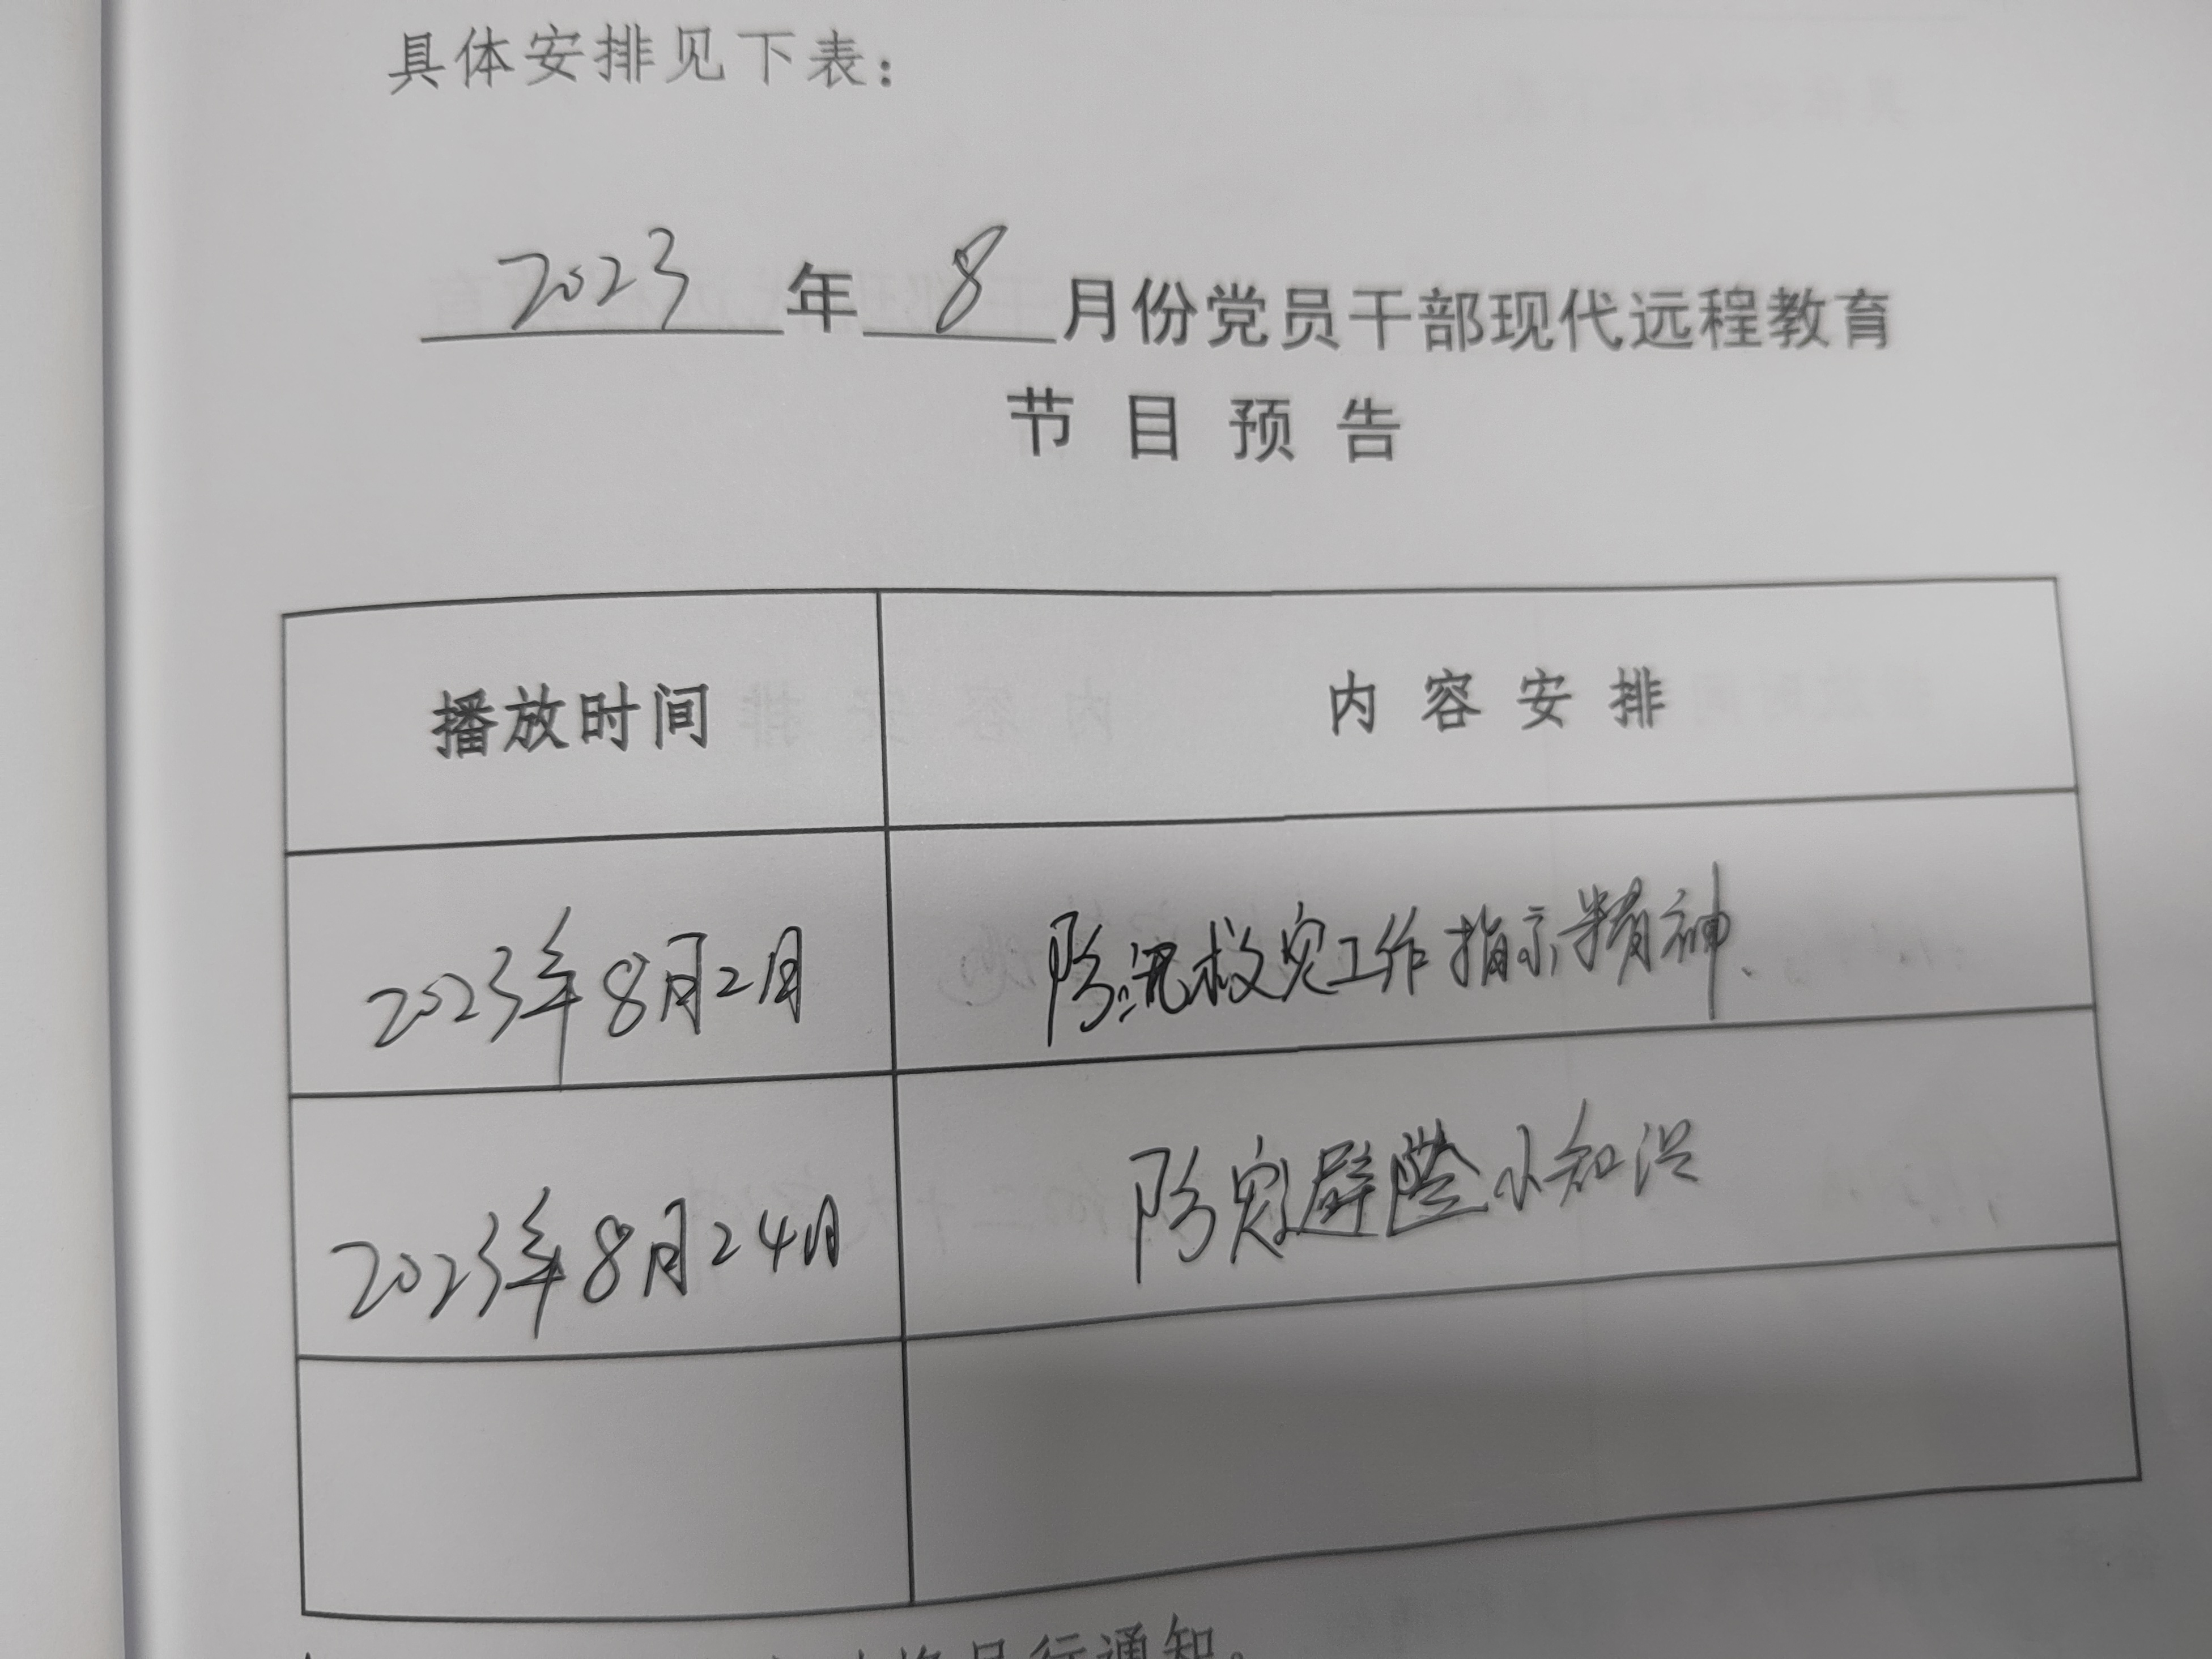 具体安排见下表：
2023年8月份党员干部现代远程教育
节目预告
播放时间 内容安排
2023年8月2日 防汛救灾工作指示精神、
2023年8月24日 防灾避险小知识
另行通知。